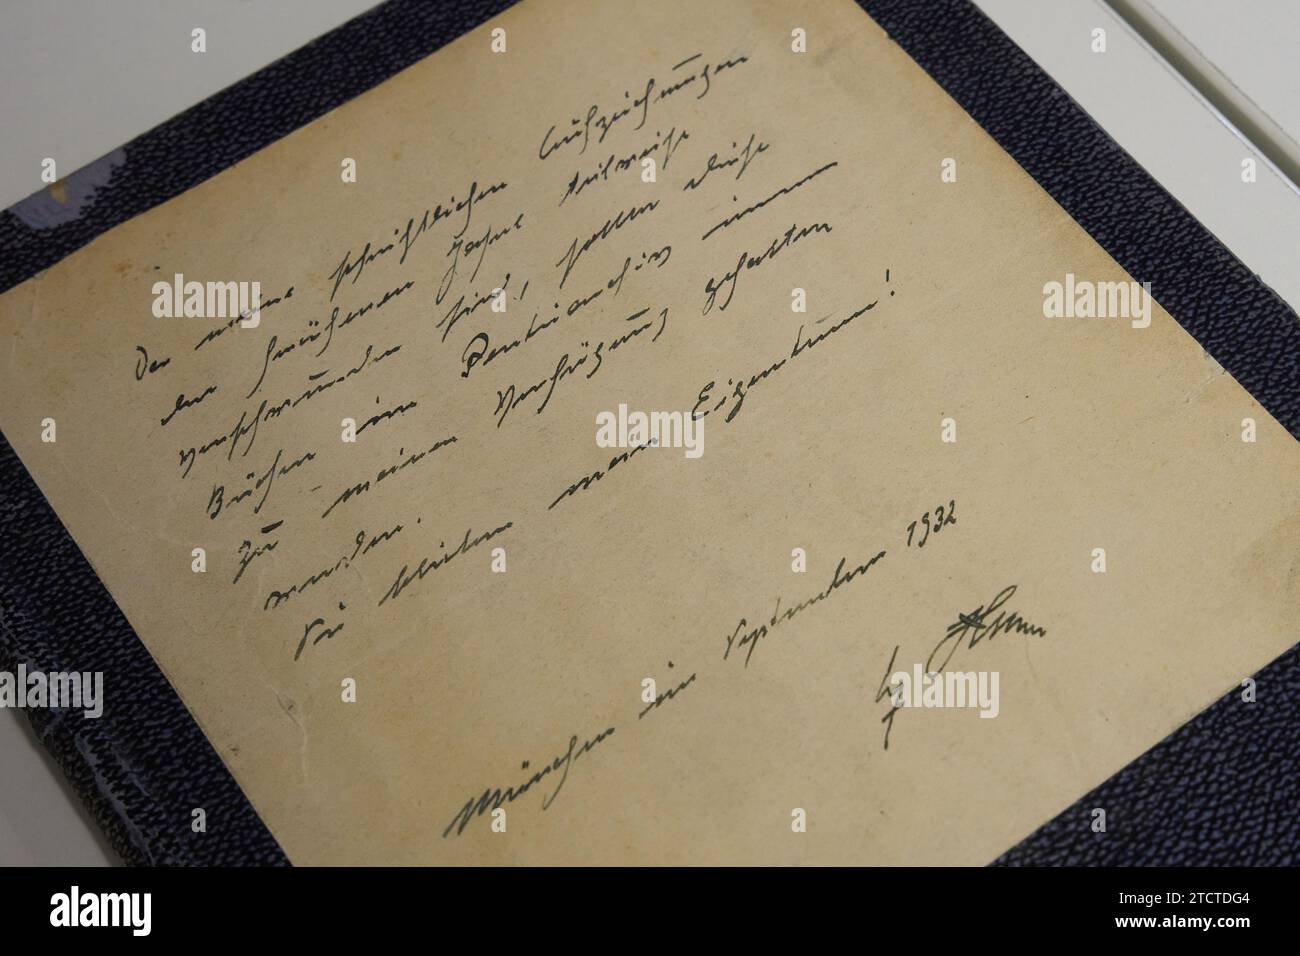 Da meine schriftlichen Aufzeichnungen
der früheren Jahre teilweise
verschwunden sind, sollen diese
Bücher im Parteiarchiv immer
zu meiner Verfügung gehalten
werden.
Sie bleiben mein Eigentum!
München im September 1932
alamy
Image ID: 2TCTDG4
www.alamy.com